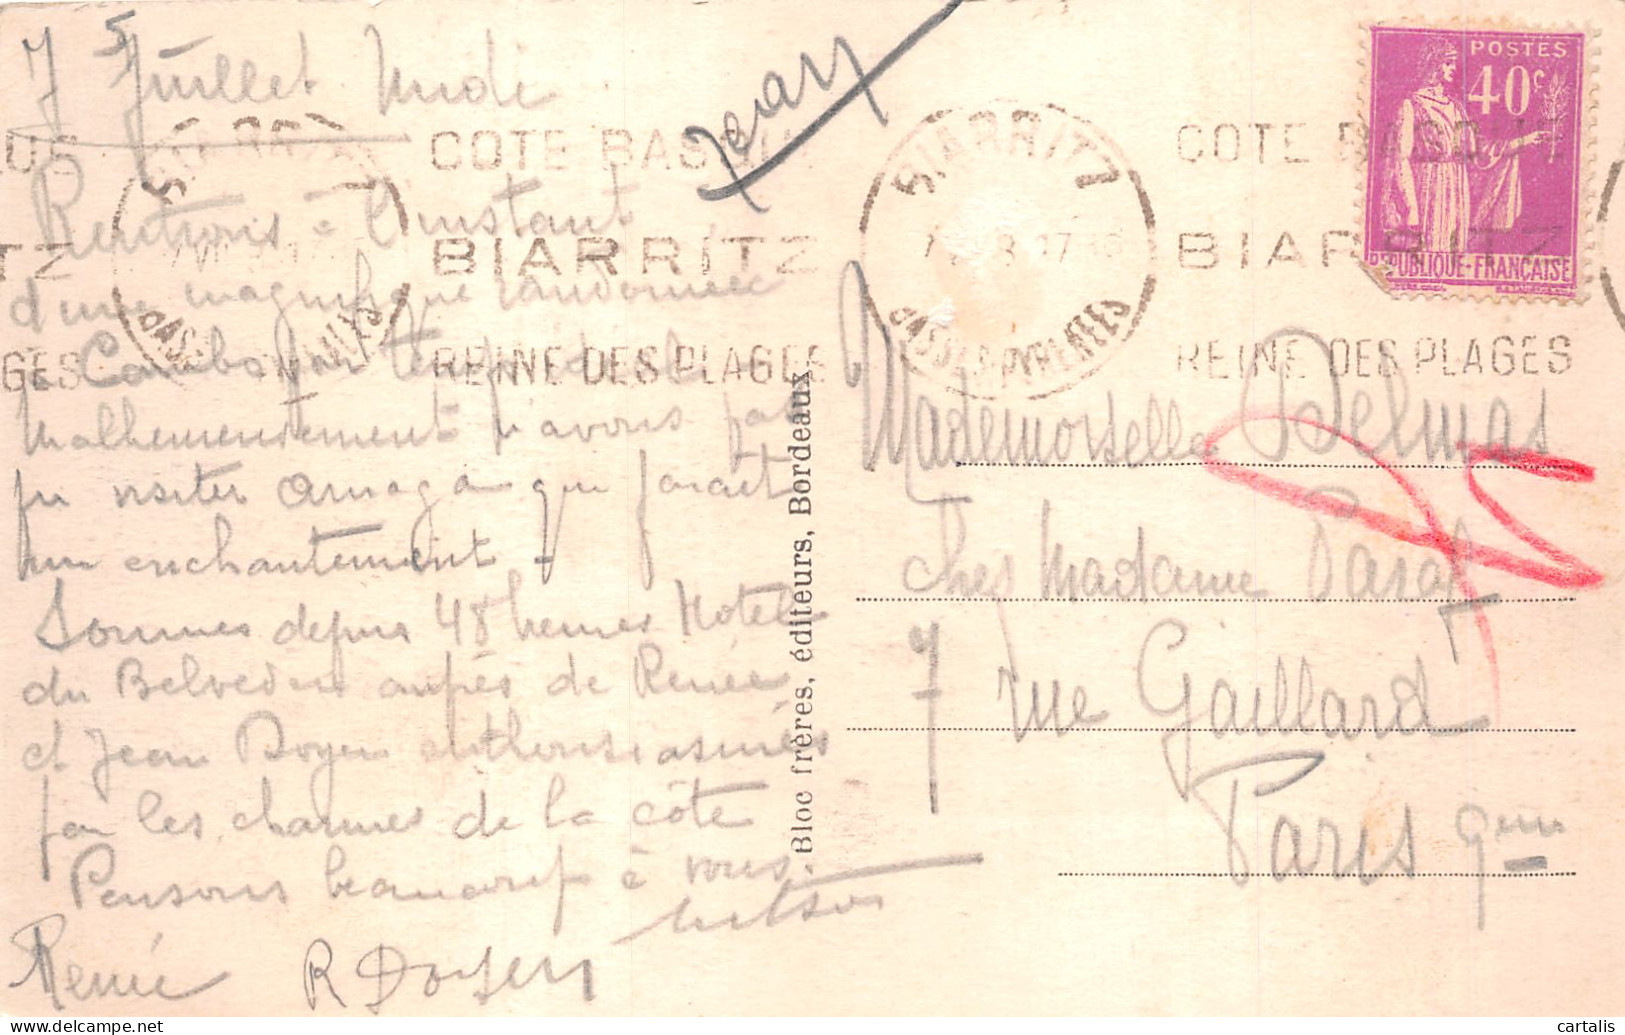 7 Juillet Midi
Rentrons à l'instant
d'une magnifique randonnée
à Cambo par temps
Malheureusement n'avons pas
pu visiter Arnaga qui parait
un enchantement -
Sommes depuis 48 heures Hotel
du Belvedere auprès de Renée
et Jean Doyen enthousiasmés
par les charmes de la côte
Pensons beaucoup à vous.
Renée R Doyen
Jean
COTE BASQUE
BIARRITZ
REINE DES PLAGES
BIARRITZ
BASSES-PYRENEES
COTE BASQUE
BIARRITZ
REINE DES PLAGES
BIARRITZ
BASSES-PYRENEES
POSTES
40c
REPUBLIQUE-FRANÇAISE
Bloc frères, éditeurs, Bordeaux
Mademoiselle Delmas
Chez Madame
7 rue Gaillard
Paris 9eme
cartalis
delcampe.net